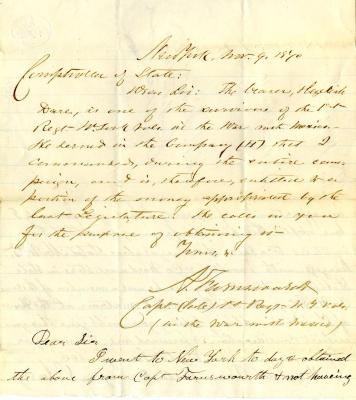 New York, Nov. 9, 1870
Comptroller of State:
Dear Sir: The bearer, Hezekiah
is one of the survivors of the 1st
Regt New York Vols in the War with Mexico.
He served in the Company (H) that I
commanded, during the entire cam-
paign, and is, therefore, entitled to a
portion of the money appropriated by the
last Legislature. He calls on you
for the purpose of obtaining it
Yours, &c
Capt (late) 1st Regt N.Y. Vols.
(in the War with Mexico)
Dear Sir
I went to New York to day & obtained
the above from Capt Farnsworth & not having